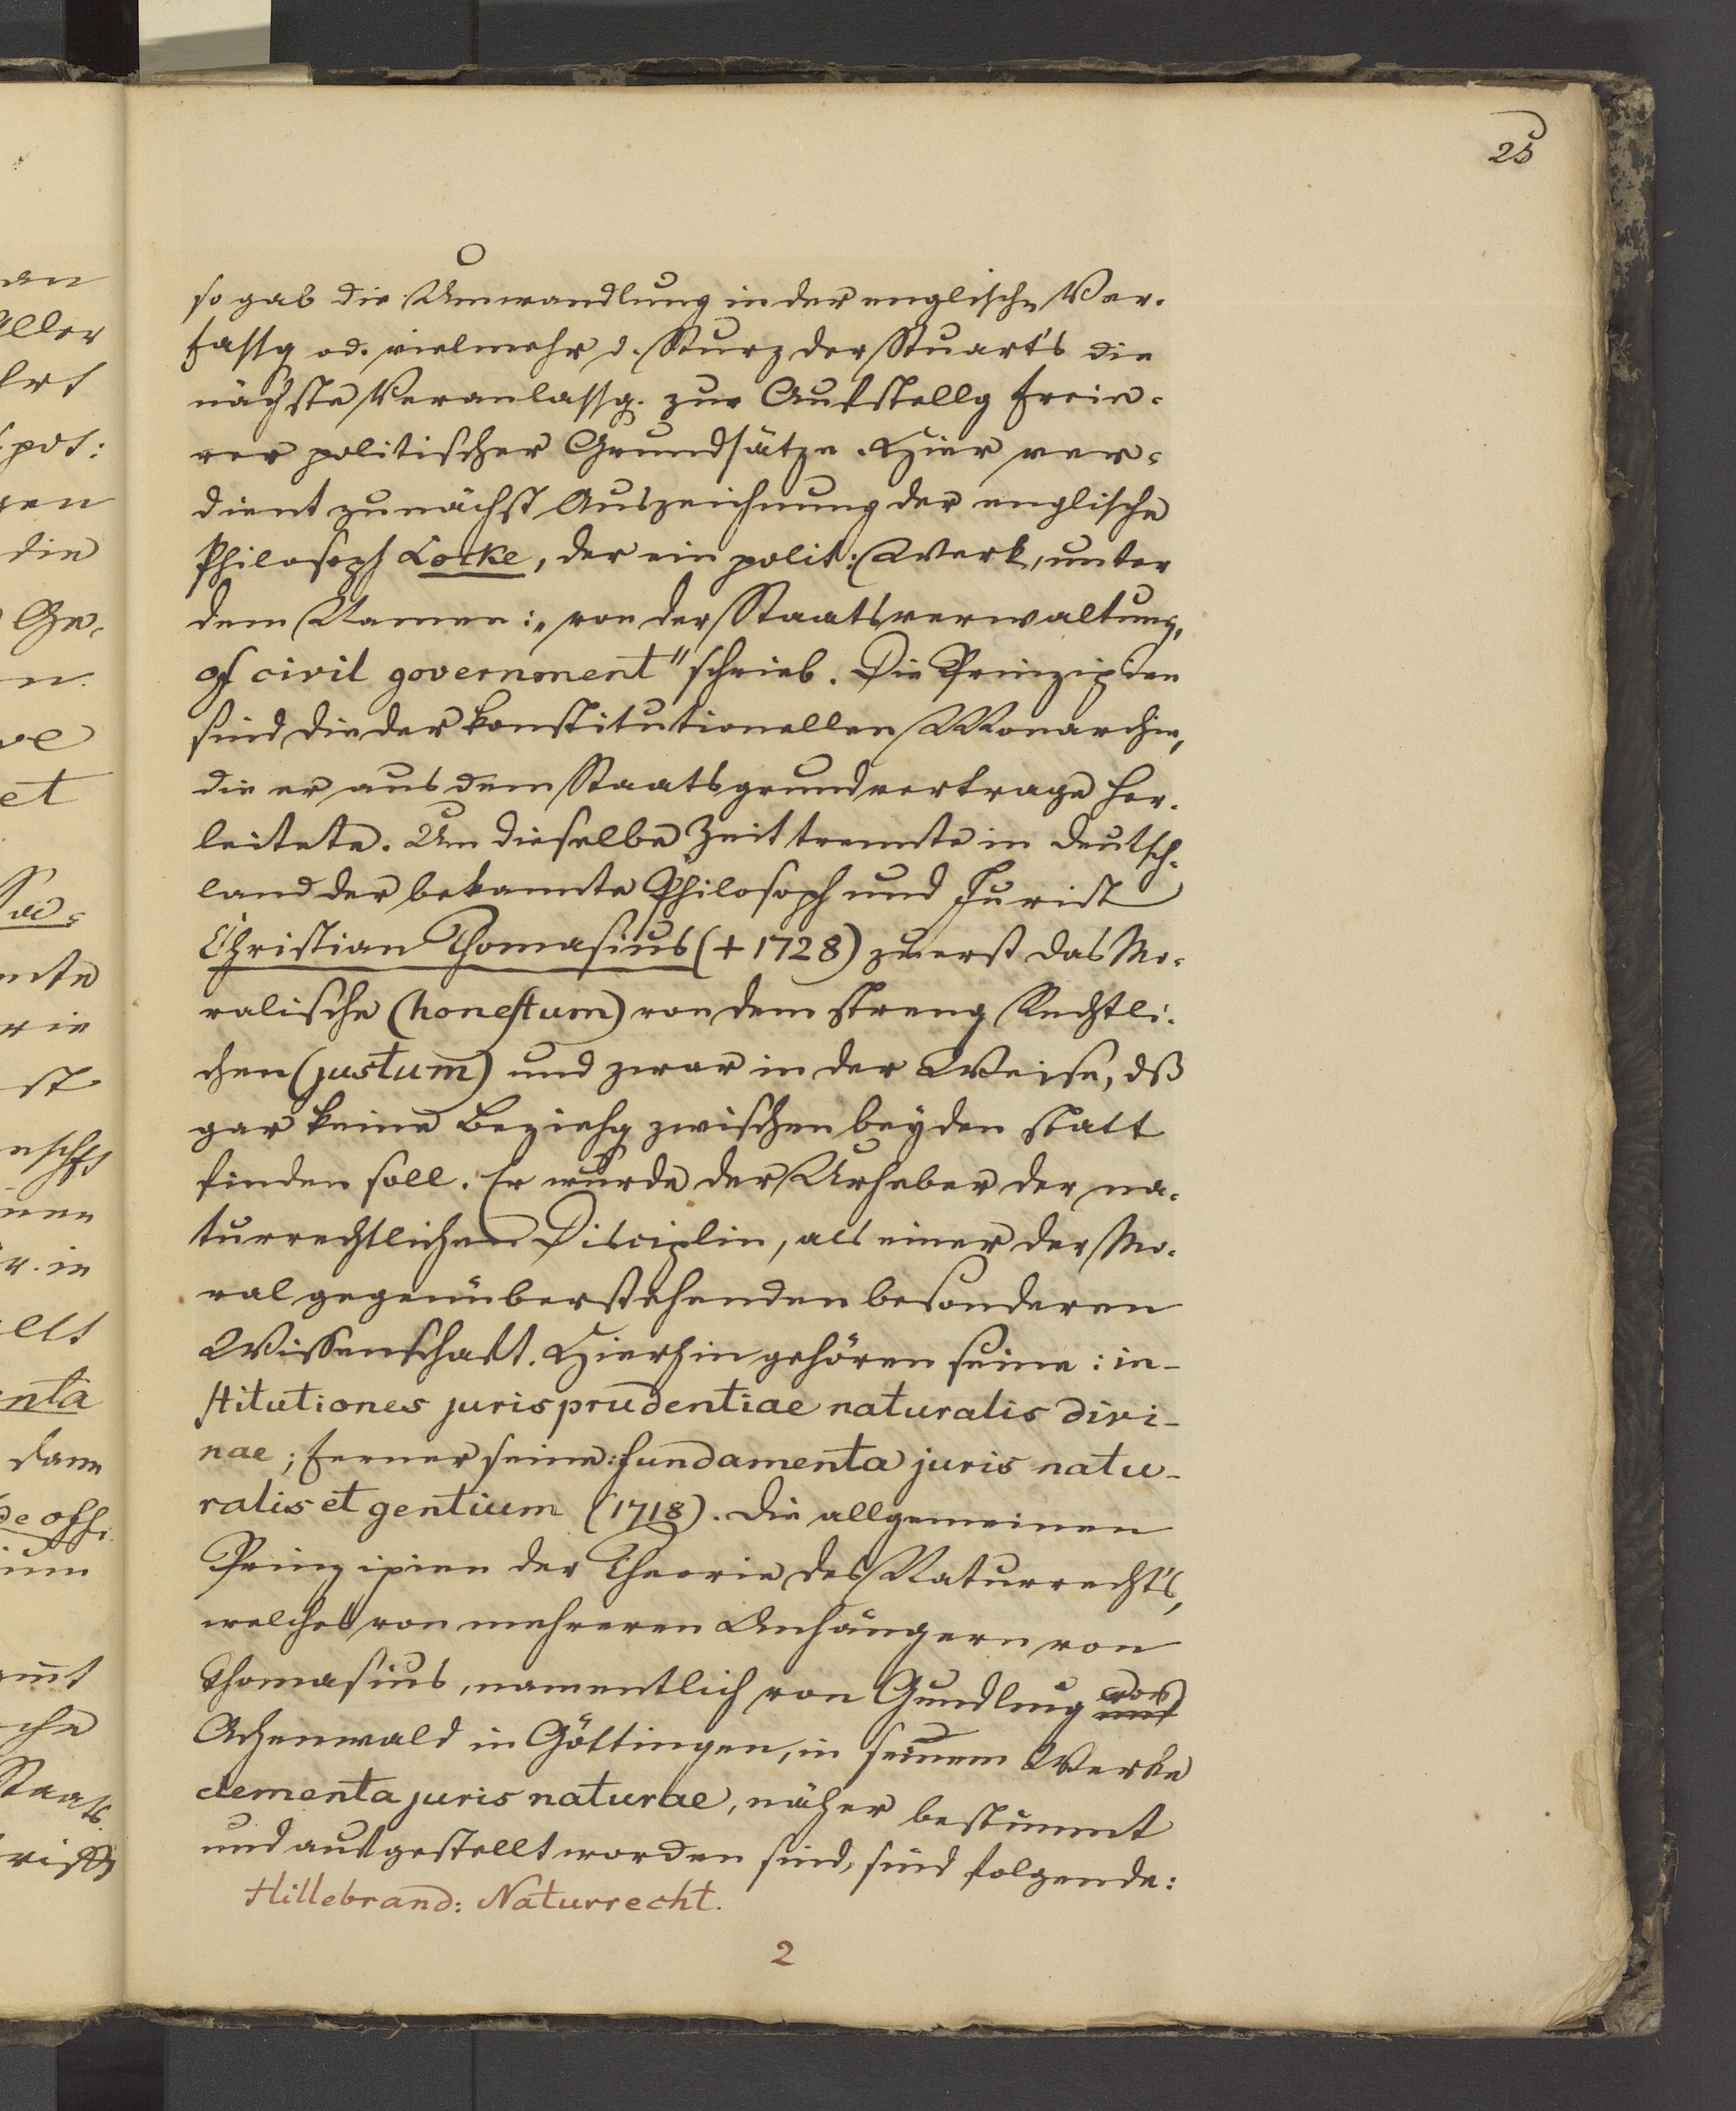 25
so gab die Umwandlung in der englischn Ver-
fassg od. vielmehr d. Sturz der Stuart's die
nächste Veranlassg. zur Aufstellg freie-
rer politischer Grundsätze. Hier ver-
dient zunächst Auszeichnung der englische
Philosoph Locke, der ein polit: Werk, unter
dem Namen: „von der Staatsverwaltung,
of civil government" schrieb. Die Prinzipien
sind die der konstitutionellen Monarchie,
die er aus dem Staatsgrundvertrage her-
leitete. Um dieselbe Zeit trennte in Deutsch-
land der bekannte Philosoph und Jurist
Christian Thomasius (+ 1728) zuerst das Mo-
ralische (honestum) von dem streng Rechtli-
chen (justum) und zwar in der Weise, dß
gar keine Beziehg zwischen beyden statt
finden soll. Er wurde der Urheber der na-
turrechtlichen Disciplin, als einer der Mo-
ral gegenüberstehenden besonderen
Wissenschaft. Hierhin gehören seine: in-
stitutiones jurisprudentiae naturalis divi-
nae; ferner seine: fundamenta juris natu-
ralis et gentium (1718). Die allgemeinen
Prinzipien der Theorie des Naturrecht's,
welches von mehreren Anhängern von
Thomasius, namentlich von Gundling von
Achenwald in Göttingen, in seinem Werke
elementa juris naturae, näher bestimmt
und aufgestellt worden sind, sind folgende:
Hillebrand: Naturrecht.
2